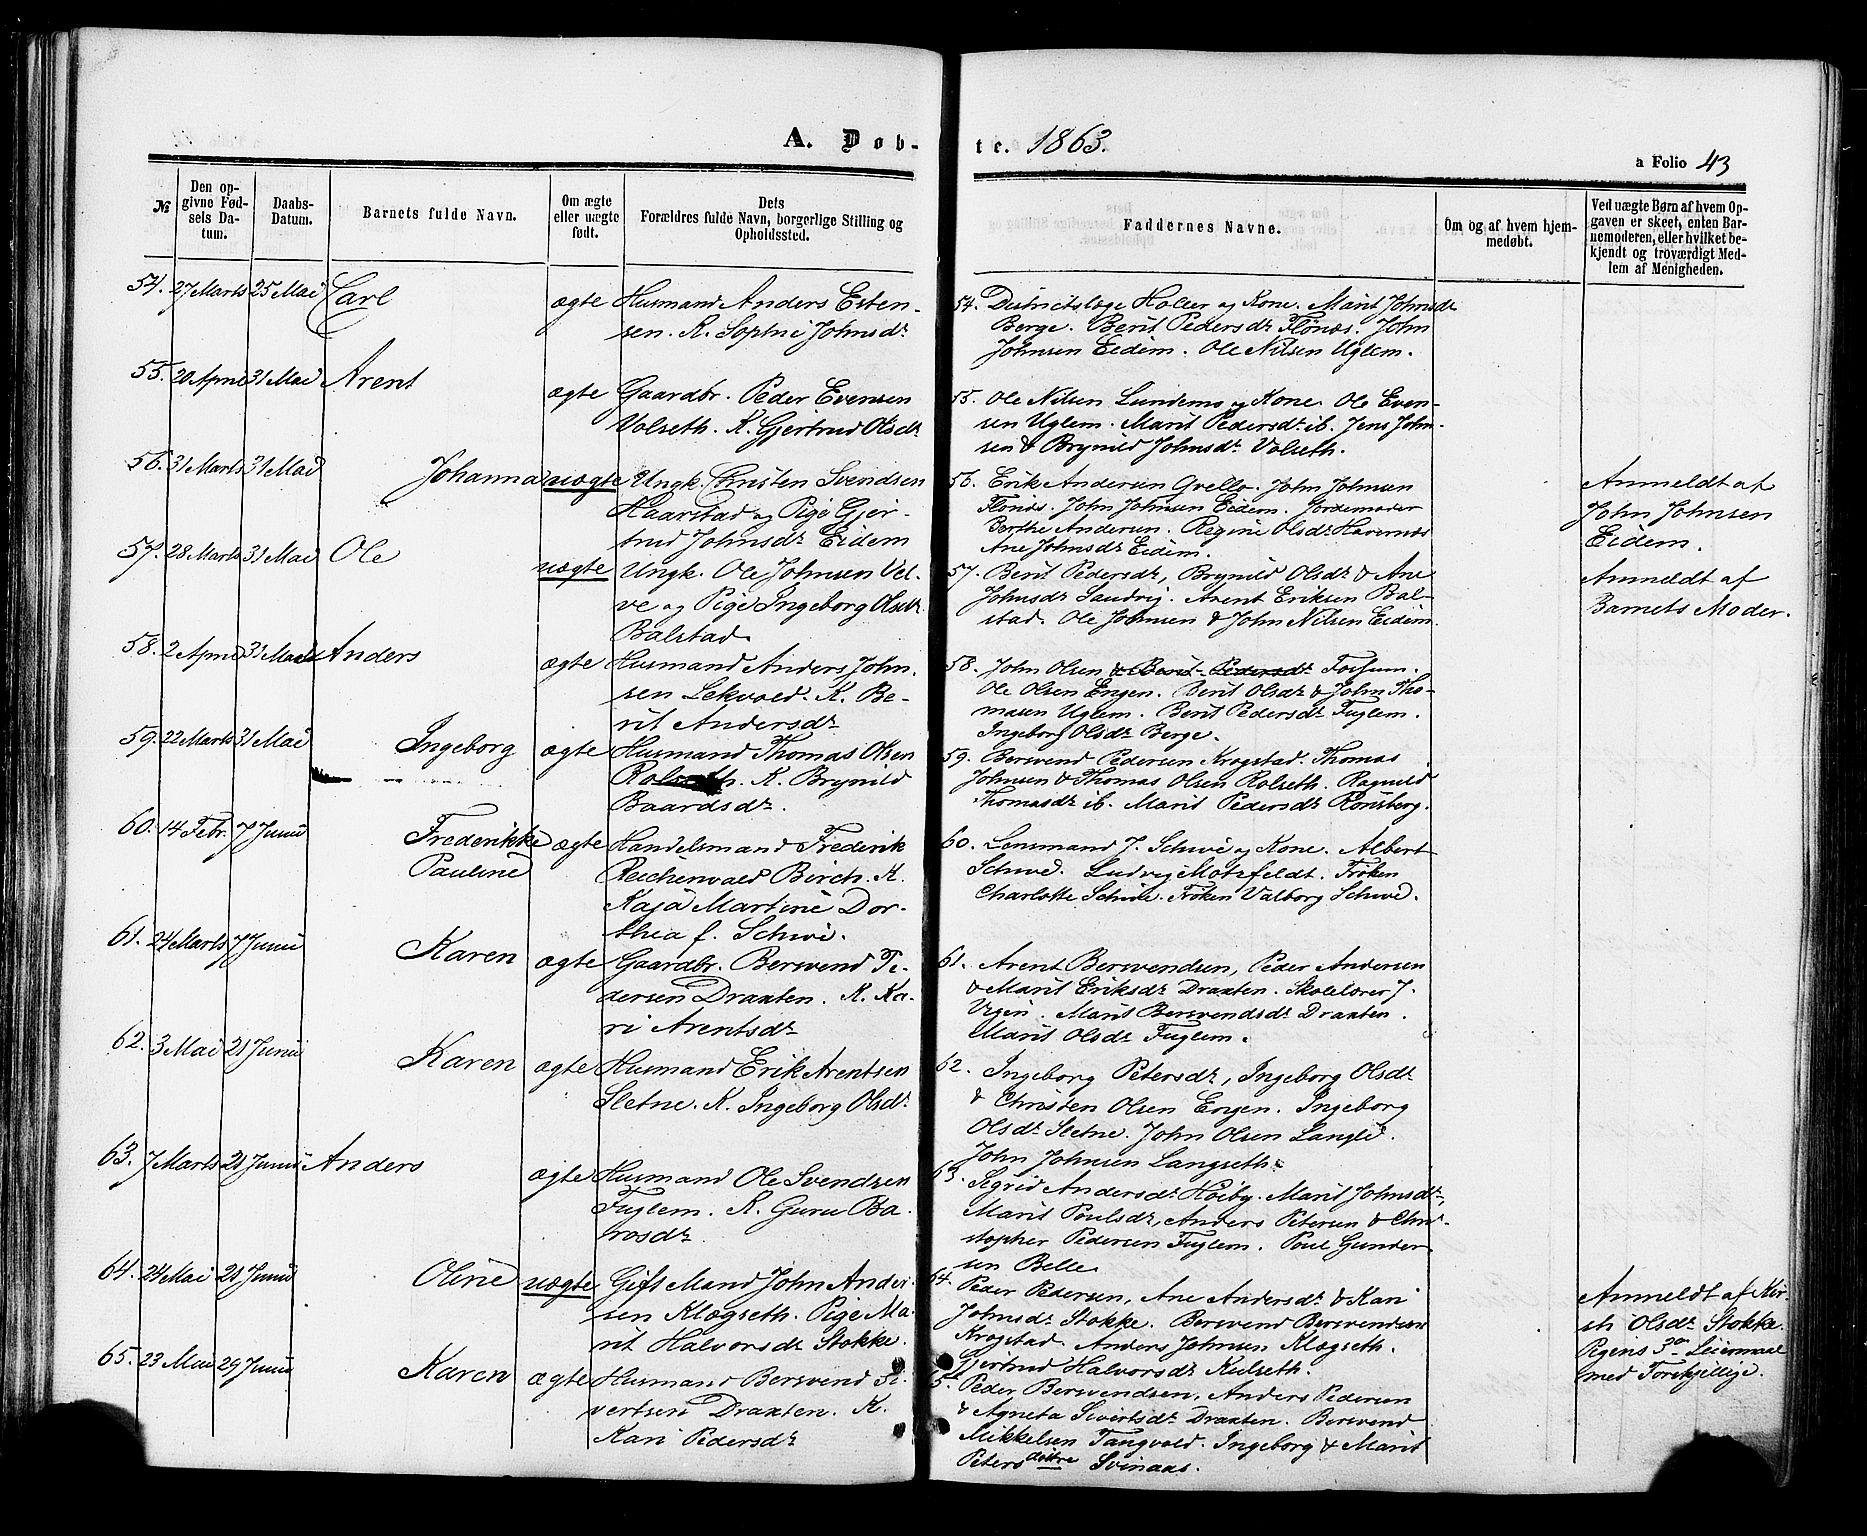 A. Døb-
te. 1863.
a Folio 43
№
Den op-
givne Fød-
sels Da-
tum.
Daabs-
Datum.
Barnets fulde Navn.
Om ægte
eller uægte
født.
Dets
Forældres fulde Navn, borgerlige Stilling og
Opholdssted.
Faddernes Navne.
Om og af hvem hjem-
medøbt.
Ved uægte Børn af hvem Op-
gaven er skeet, enten Bar-
nemoderen, eller hvilket be-
kjendt og troværdigt Med-
lem af Menigheden.
54. 27 Marts 25 Mai Carl ægte Husmand Anders Esten-
sen. K. Sophie Johnsdr
54. Districtslæge Holler og Kone. Marit Johnsdr
Berge. Berit Pedersdr Flönæs. John
Johnsen Eidem. Ole Nilsen Uglem.
55. 20 April 31 Mai Arent ægte Gaardbr. Peder Evensen
Volseth. K. Gjertrud Olsdr
55. Ole Nilsen Lundemo og Kone. Ole Even-
sen Uglem. Marit Pedersdr ib. Jens John-
sen & Brynild Johnsdr Volseth.
56. 31 Marts 31 Mai Johanna uægte Ungk. Christen Svendsen
Haarstad og Pige Gjer-
trud Johnsdr Eidem
56. Erik Andersen Qvello. John Johnsen
Flönæs. John Johnsen Eidem. Jordemoder
Berthe Andersen. Regine Olsdr Havernæs
Ane Johnsdr Eidem.
Anmeldt af
John Johnsen
Eidem.
57. 28 Marts 31 Mai Ole uægte Ungk. Ole Johnsen Vel-
ve og Pige Ingeborg Olsdr
Balstad
57. Berit Pedersdr, Brynild Olsdr & Ane
Johnsdr Sandvig. Arent Eriksen Bal-
stad. Ole Johnsen & John Nilsen Eidem.
Anmeldt af
Barnets Moder.
58. 2 April 31 Mai Anders ægte Husmand Anders John-
sen Lekvold. K. Be-
rit Andersdr
58. John Olsen & Berit Pedersdr Fossum.
Ole Olsen Engen. Berit Olsdr & John Tho-
masen Uglem. Berit Pedersdr Fuglem.
Ingeborg Olsdr Berge.
59. 22 Marts 31 Mai Ingeborg ægte Husmand Thomas Olsen
Rolseth. K. Brynild
Baardsdr.
59. Bersvend Pedersen Krogstad. Thomas
Johnsen & Thomas Olsen Rolseth. Ragnild
Thomasdr ib. Marit Pedersdr Rönsberg.
60. 14 Febr. 7 Junii Frederikke ægte Handelsmand Frederik
Pauline Reichenvald Birch. K.
Kaja Martine Dor-
thea f. Schive.
60. Lensmand J. Schive og Kone. Albert
Schive. Ludvig Motzfeldt. Fröken
Charlotte Schive. Fröken Valborg Schive.
61. 24 Marts 7 Junii Karen ægte Gaardbr. Bersvend Pe-
dersen Draxten. K. Ka-
ri Arentsdr
61. Arent Bersvendsen, Peder Andersen
& Marit Eriksdr Draxten. Skolelærer J.
Vigen. Marit Bersvendsdr Draxten.
Marit Olsdr Fuglem.
62. 3 Mai 21 Junii Karen ægte Husmand Erik Arentsen
Sletne. K. Ingeborg Olsdr
62. Ingeborg Petersdr, Ingeborg Olsdr
& Christen Olsen Engen. Ingeborg
Olsdr Sletne. John Olsen Langli.
John Johnsen Langseth.
63. 7 Marts 21 Junii Anders ægte Husmand Ole Svendsen
Fuglem. K. Guru Ba-
rosdr.
63. Sigrid Andersdr Höiby. Marit Johnsdr,
Marit Poulsdr, Anders Petersen & Chri-
stopher Pedersen Fuglem. Poul Gunder-
sen Belle.
64. 24 Mai 21 Junii Oline uægte Gift Mand John Ander-
sen Klægseth. Pige Ma-
rit Halvorsdr Stokke.
64. Peder Pedersen, Ane Andersdr & Kari
Johnsdr Stokke. Bersvend Bersvendsen
Krogstad. Anders Johnsen Klægseth.
Gjertrud Halvorsdr Kulseth.
Anmeldt af Kir-
sti Olsdr Stokke.
Pigens 3die Leiermaal
med Forskjellige.
65. 23 Mai 29 Junii Karen ægte Husmand Bersvend Si-
vertsen Draxten. K.
Kari Pedersdr
65. Peder Bersvendsen, Anders Pedersen
& Agneta Sivertsdr Draxten. Bersvend
Mikkelsen Tangvold. Ingeborg & Marit
Peters döttre Svinaas.